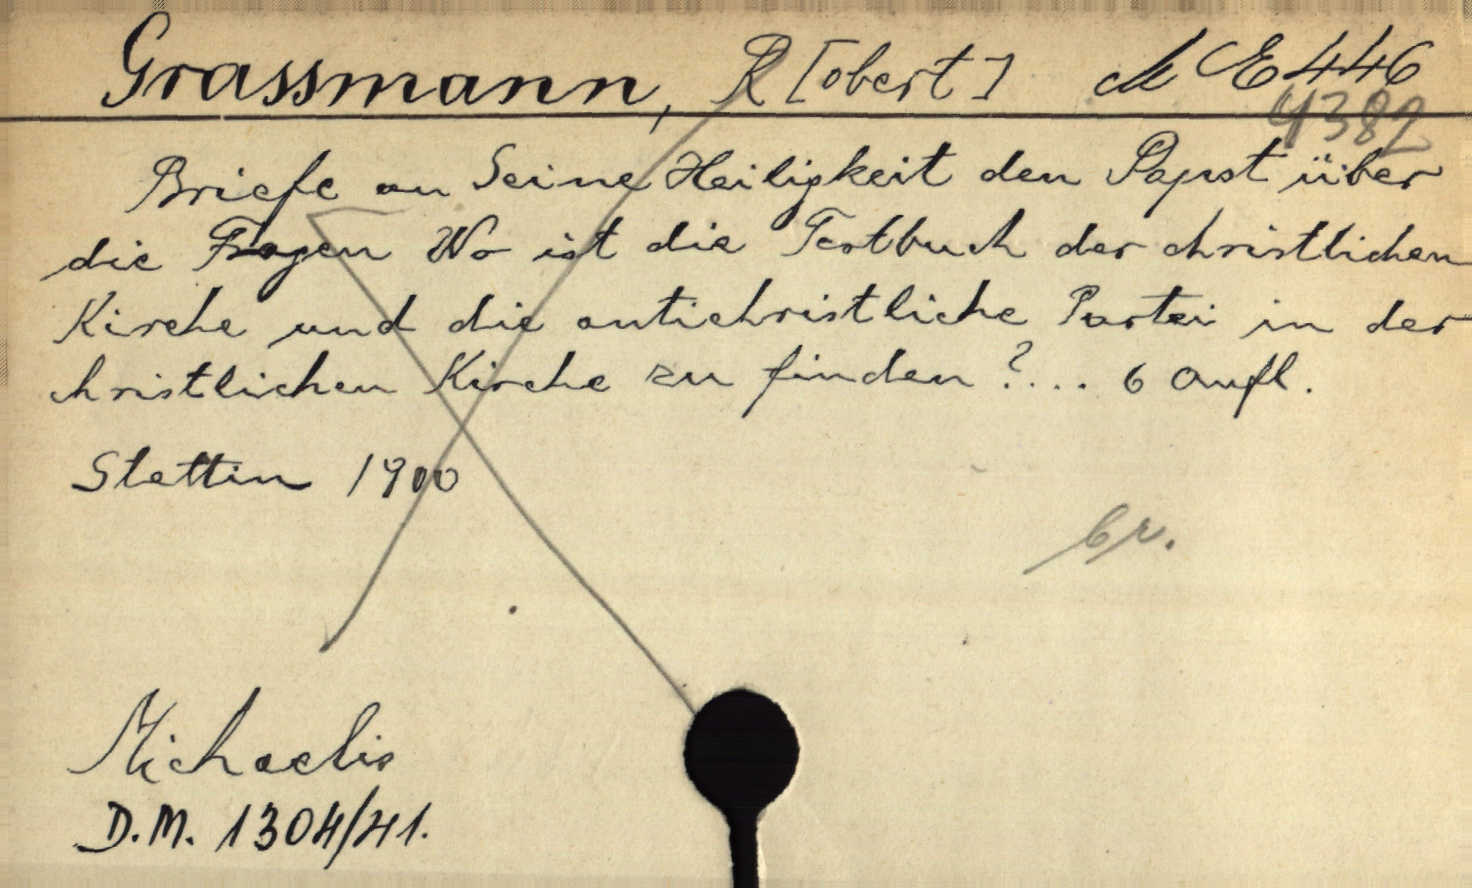 Grassmann, R[obert] E 446
4382
Briefe an Seine Heiligkeit den Papst über
die Fragen Wo ist die Textbuch der christlichen
Kirche und die antichristliche Partei in der
christlichen Kirche zu finden?... 6 Aufl.
Stettin 1900
br.
Michaelis
D.M. 1304/41.